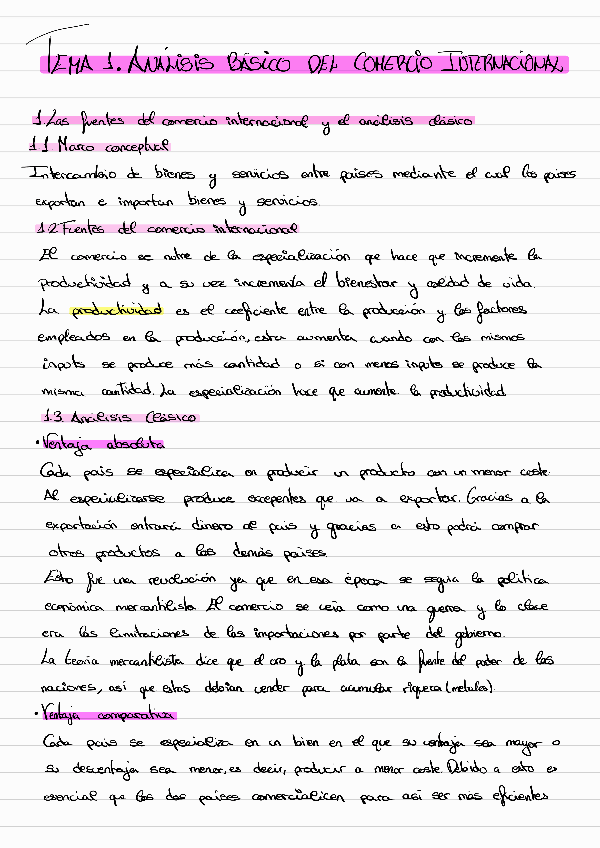 TEMA 1. ANÁLISIS BÁSICO DEL COMERCIO INTERNACIONAL
1. Las fuentes del comercio internacional y el análisis clásico
1.1 Marco conceptual
Intercambio de bienes y servicios entre países mediante el cual los países
exportan e importan bienes y servicios.
1.2 Fuentes del comercio internacional
El comercio se nutre de la especialización que hace que incremente la
productividad y a su vez incrementa el bienestar y calidad de vida.
La productividad es el coeficiente entre la producción y los factores
empleados en la producción, esta aumenta cuando con los mismos
inputs se produce más cantidad o si con menos inputs se produce la
misma cantidad. La especialización hace que aumente la productividad
1.3 Análisis Clásico
• Ventaja absoluta
Cada país se especializa en producir un producto con un menor coste.
Al especializarse produce excepentes que va a exportar. Gracias a la
exportación entrará dinero al país y gracias a esto podrá comprar
otros productos a los demás países.
Esto fue una revolución ya que en esa época se seguía la política
económica mercantilista. El comercio se veía como una guerra y la clave
era las limitaciones de las importaciones por parte del gobierno.
La teoría mercantilista dice que el oro y la plata son la fuente del poder de las
naciones, así que estas debían vender para acumular riqueza (metales).
• Ventaja comparativa
Cada país se especializa en un bien en el que su ventaja sea mayor o
su desventaja sea menor, es decir, producir a menor coste. Debido a esto es
esencial que los dos países comercialicen para así ser más eficientes